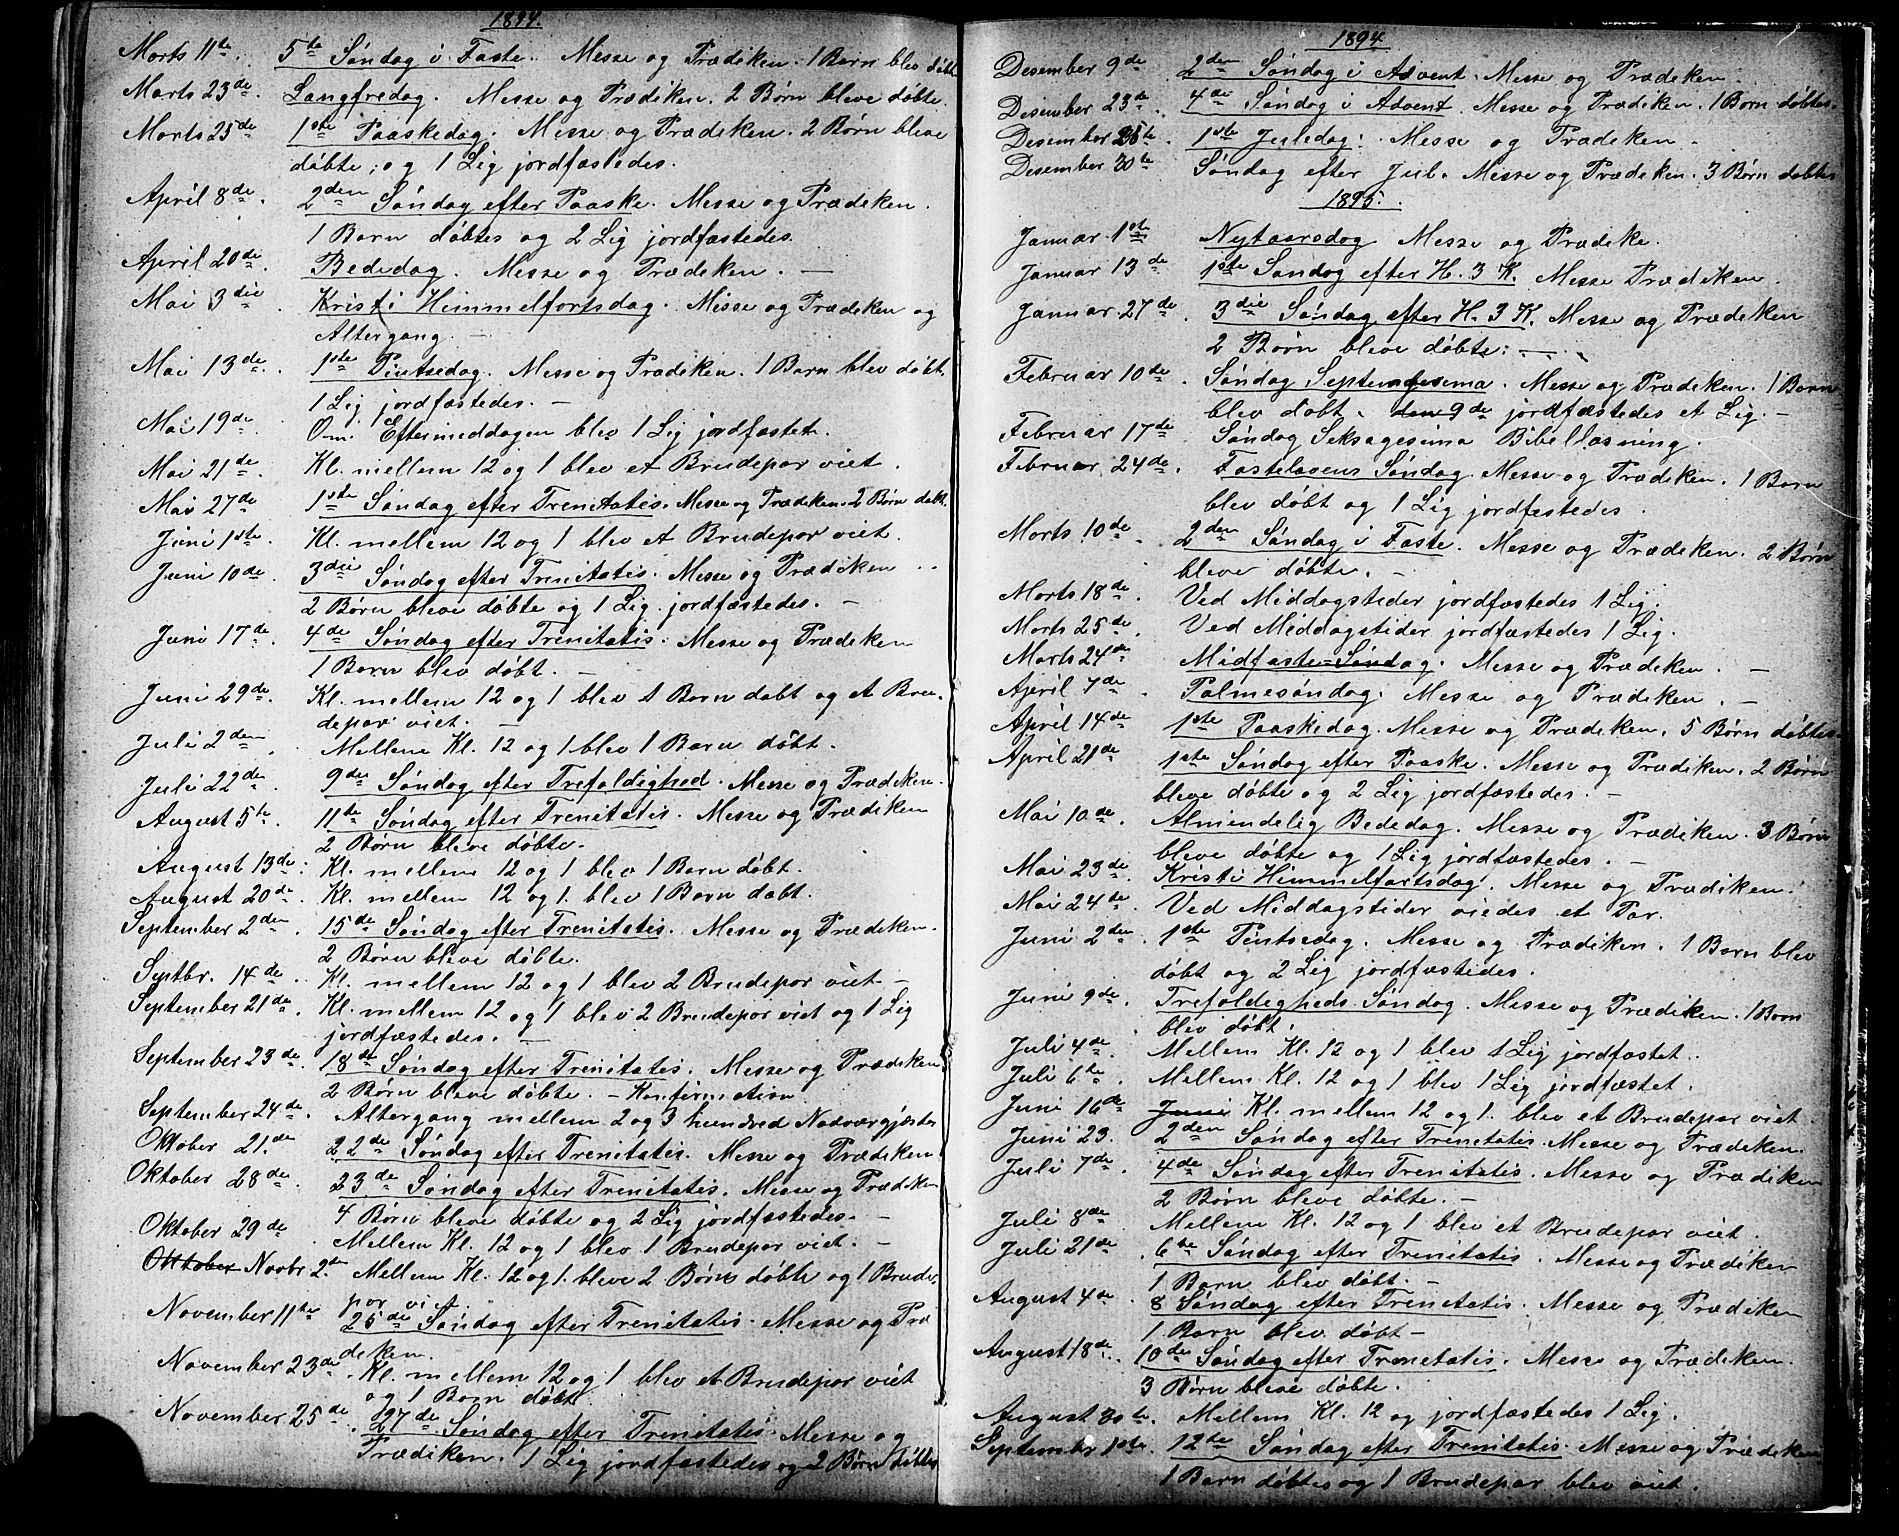 1894.
Morts 11te 5te Søndag i Faste. Messe og Prædiken. 1 Barn blev døbt.
Morts 23de. Langfredag. Messe og Prædiken. 2 Børn bleve døbte.
Morts 25de 1ste Paaskedag. Messe og Prædiken. 2 Børn bleve
døbte; og 1 Lig jordfæstedes.
April 8de. 2den Søndag efter Paaske. Messe og Prædiken.
1 Barn døbtes og 2 Lig jordfæstedes.
April 20de. Bededag. Messe og Prædiken. —
Mai 3die. Kristi Himmelfortsdag. Messe og Prædiken og
Altergang. —
Mai 13de. 1ste Pintsedag. Messe og Prædiken. 1 Barn blev døbt.
1 Lig jordfæstedes. —
Mai 19de. Om Eftermeddagen blev 1 Lig jordfæstet.
Mai 21de. Kl. mellem 12 og 1 blev et Brudepar viet.
Mai 27de 1ste Søndag efter Trenitatis. Messe og Prædiken. 2 Børn døbt.
Juni 1ste. Kl. mellem 12 og 1 blev et Brudepar viet.
Juni 10de. 3die Søndag efter Trenitatis. Messe og Prædiken
2 Børn bleve døbte og 1 Lig jordfæstedes. —
Juni 17de. 4de Søndag efter Trenitatis. Messe og Prædiken
1 Barn blev døbt. —
Juni 29de. Kl. mellem 12 og 1 blev 1 Barn døbt og et Bru-
depar viet. —
Juli 2den. Mellem Kl. 12 og 1 blev 1 Barn døbt.
Juli 22de. 9de Søndag efter Trefoldighed. Messe og Prædiken.
August 5te. 11te Søndag efter Trenitatis. Messe og Prædiken
2 Børn bleve døbte.
August 13de. Kl. mellem 12 og 1 blev 1 Barn døbt.
August 20de. Kl. mellem 12 og 1. blev 1 Barn døbt.
September 2den. 15de Søndag efter Trenitatis. Messe og Prædiken.
2 Børn bleve døbte.
Septbr. 14de. Kl. mellem 12 og 1 blev 2 Brudepar viet. —
September 21de. Kl. mellem 12 og 1 blev 2 Brudepar viet og 1 Lig
jordfæstedes. —
September 23de. 18de Søndag efter Trenitatis. Messe og Prædiken
2 Børn bleve døbte. — Konfirmation.
September 24de. Altergang mellem 2 og 3 hundred Nadvergjester
Oktober 21.de 22de Søndag efter Trenitatis. Messe og Prædiken.
Oktober 28de. 23de Søndag efter Trenitatis. Messe og Prædiken
4 Børn bleve døbte og 2 Lig jordfæstedes. —
Oktober 29de Mellem Kl. 12 og 1 blev 1 Brudepar viet. —
Oktober Novbr 2.den Mellem Kl. 12 og 1. bleve 2 Børn døbte og 1 Brude-
par viet
November 11te 25de Søndag efter Trenitatis. Messe og Præ
deken.
November 23de. Kl. mellem 12 og 1 blev et Brudepar viet
og 1 Barn døbt.
November 25de. 27de Søndag efter Trenitatis. Messe og
Prædiken. 1 Lig jordfæstedes og 2 Børn døbtes
1894
Desember 9de 2den Søndag i Advent. Messe og Prædiken.
Desember 23de. 4de Søndag i Advent. Messe og Prædiken. 1 Barn døbtes.
Desember 25te 1ste Juledag. Messe og Prædiken.
Desember 30te Søndag efter Jul. Messe og Prædiken. 3 Børn døbtes
1895.
Januar 1ste Nytaarsdag Messe og Prædike.
Januar 13de 1ste Søndag efter H. 3 K. Messe Prædiken.
Januar 27de. 3die Søndag efter H. 3 K. Messe og Prædiken
2 Børn bleve døbte. —
Februar 10de. Søndag Septuagesima. Messe og Prædiken. 1 Barn
blev døbt. den 9de jordfæstedes et Lig. —
Februar 17de Søndag Seksagesima Bibellæsning.
Februar 24de. Fastelavens Søndag. Messe og Prædiken. 1 Barn
blev døbt og 1 Lig jordfæstedes.
Morts 10de. 2den Søndag i Faste. Messe og Prædiken. 2 Børn
bleve døbte. —
Morts 18de. Ved Middagstider jordfæstedes 1 Lig.
Morts 25de. Ved Middagstider jordfæstedes 1 Lig.
Morts 24de Midfaste-Søndag. Messe og Prædiken. —
April 7de. Palmesøndag. Messe og Prædiken. —
April 14de 1ste Paaskedag. Messe og Prædiken. 5 Børn døbtes.
April 21de 1ste Søndag efter Paaske. Messe og Prædiken. 2 Børn
bleve døbte og 2 Lig jordfæstedes. —
Mai 10de. Almindelig Bededag. Messe og Prædiken. 3 Børn
bleve døbte og 1 Lig jordfæstedes. —
Mai 23de. Kristi Himmelfartsdag. Messe og Prædiken.
Mai 24de. Ved Middagstider viedes et Par.
Juni 2den. 1ste Pintsedag. Messe og Prædiken. 1 Barn blev
døbt og 2 Lig jordfæstedes.
Juni 9de. Trefoldigheds Søndag. Messe og Prædiken. 1 Barn
blev døbt.
Juli 4de. Mellem Kl. 12 og 1 blev 1 Lig jordfæstet.
Juli 6te. Mellem Kl. 12 og 1 blev 1 Lig jordfæstet.
Juni 16de Juni Kl. mellem 12 og 1. blev et Brudepar viet
Juni 23. 2den Søndag efter Trenitatis. Messe og Prædiken.
Juli 7de. 4de Søndag efter Trenitatis. Messe og Prædiken
2 Børn bleve døbte. —
Juli 8de Mellem Kl. 12 og 1 blev et Brudepar viet.
Juli 21de. 6te Søndag efter Trenitatis. Messe og Prædiken
1 Barn blev døbt. —
August 4de. 8 Søndag efter Trenitatis. Messe og Prædiken
1 Barn blev døbt —
August 18de. 10de Søndag efter Trenetatis. Messe og Prædiken.
3 Børn bleve døbte.
August 30te. Mellem Kl. 12 og jordfæstedes 1 Lig.
September 1ste. 12te Søndag efter Trenitatis. Messe og Prædiken
1 Barn døbtes og 1 Brudepar blev viet.